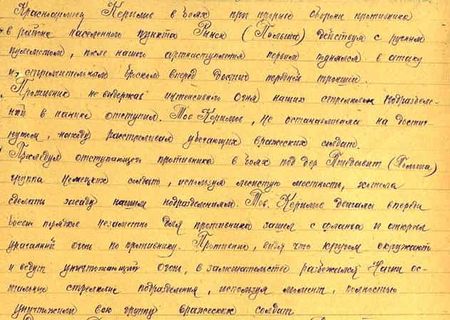 Красноармеец Керимов в боях при прорыве обороны противника
в районе населенного пункта Ринск (Польша) действуя с ручным
пулеметом, после нашего артнаступления первым поднялся в атаку
и стремительным броском вперед достиг первой траншеи.
Противник не выдержав интенсивного огня наших стрелковых подразделе-
ний в панике отступил. Тов Керимов, не останавливаясь на достиг-
нутом, находу расстреливал убегающих вражеских солдат.
Преследуя отступающего противника в боях под дер (Польша)
группа немецких солдат, используя лесистую местность, хотела
сделать засаду нашим подразделениям. Тов. Керимов двигаясь впереди
боевых порядков незаметно для противника зашел с фланга и открыл
ураганный огонь по противнику. Противник, видя что кругом окружают
и ведут уничтожающий огонь, в замешательстве разбежался. Наши ос-
тальные стрелковые подразделения, используя момент, полностью
уничтожили всю группу вражеских солдат